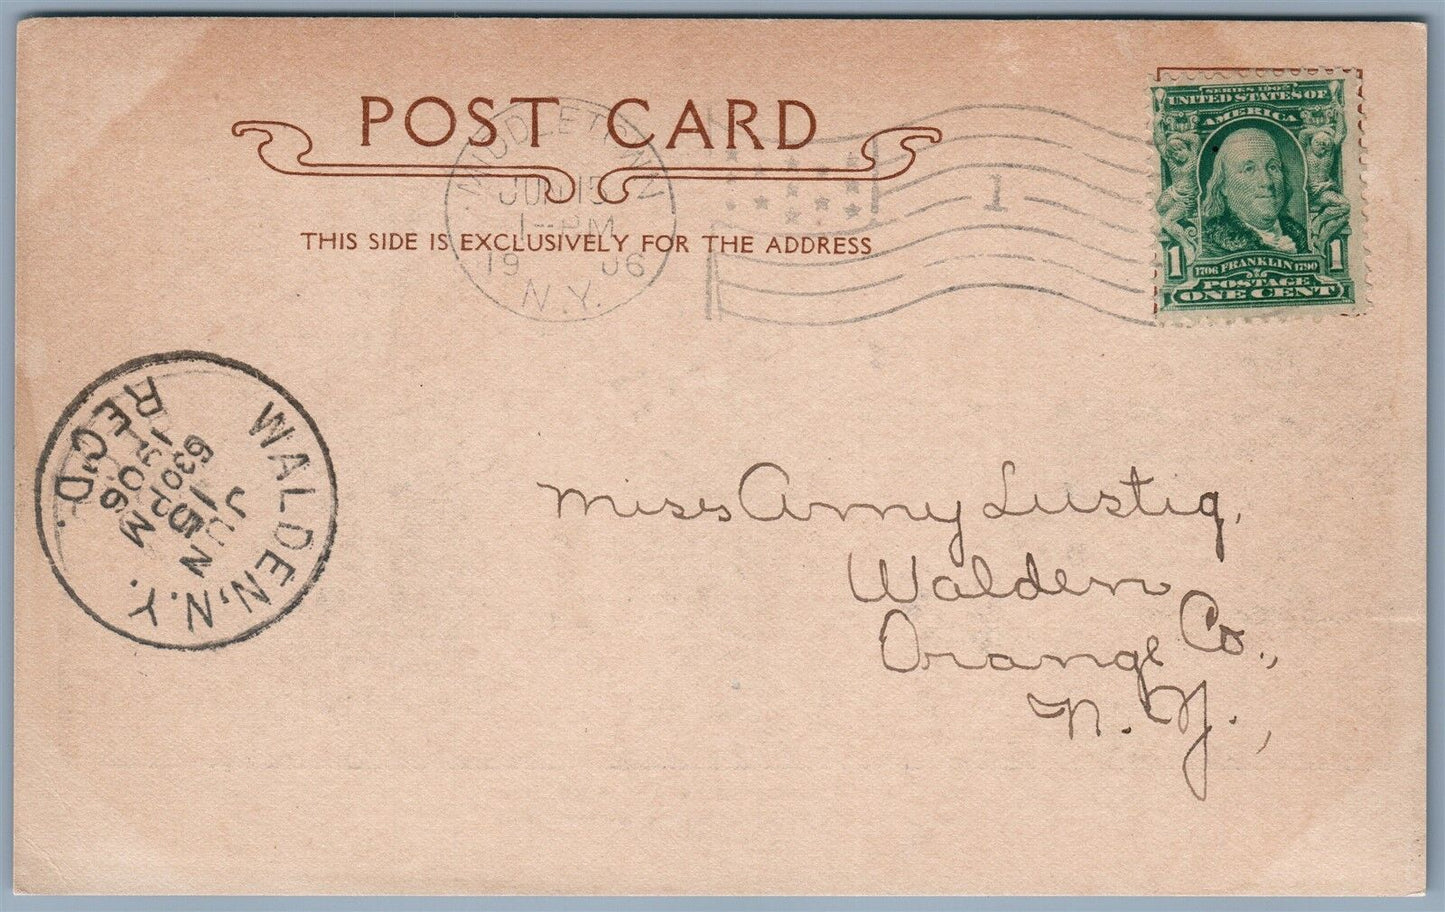 POST CARD
THIS SIDE IS EXCLUSIVELY FOR THE ADDRESS
MIDDLETOWN
JUN 15
1-PM
1906
N.Y.
1
SERIES 1902
UNITED STATES OF
AMERICA
1 1
1706 FRANKLIN 1790
POSTAGE
ONE CENT
WALDEN, N.Y.
JUN
15
630PM
1906
REC'D.
Miss Amy Lustig,
Walden
Orange Co.,
N. Y.,